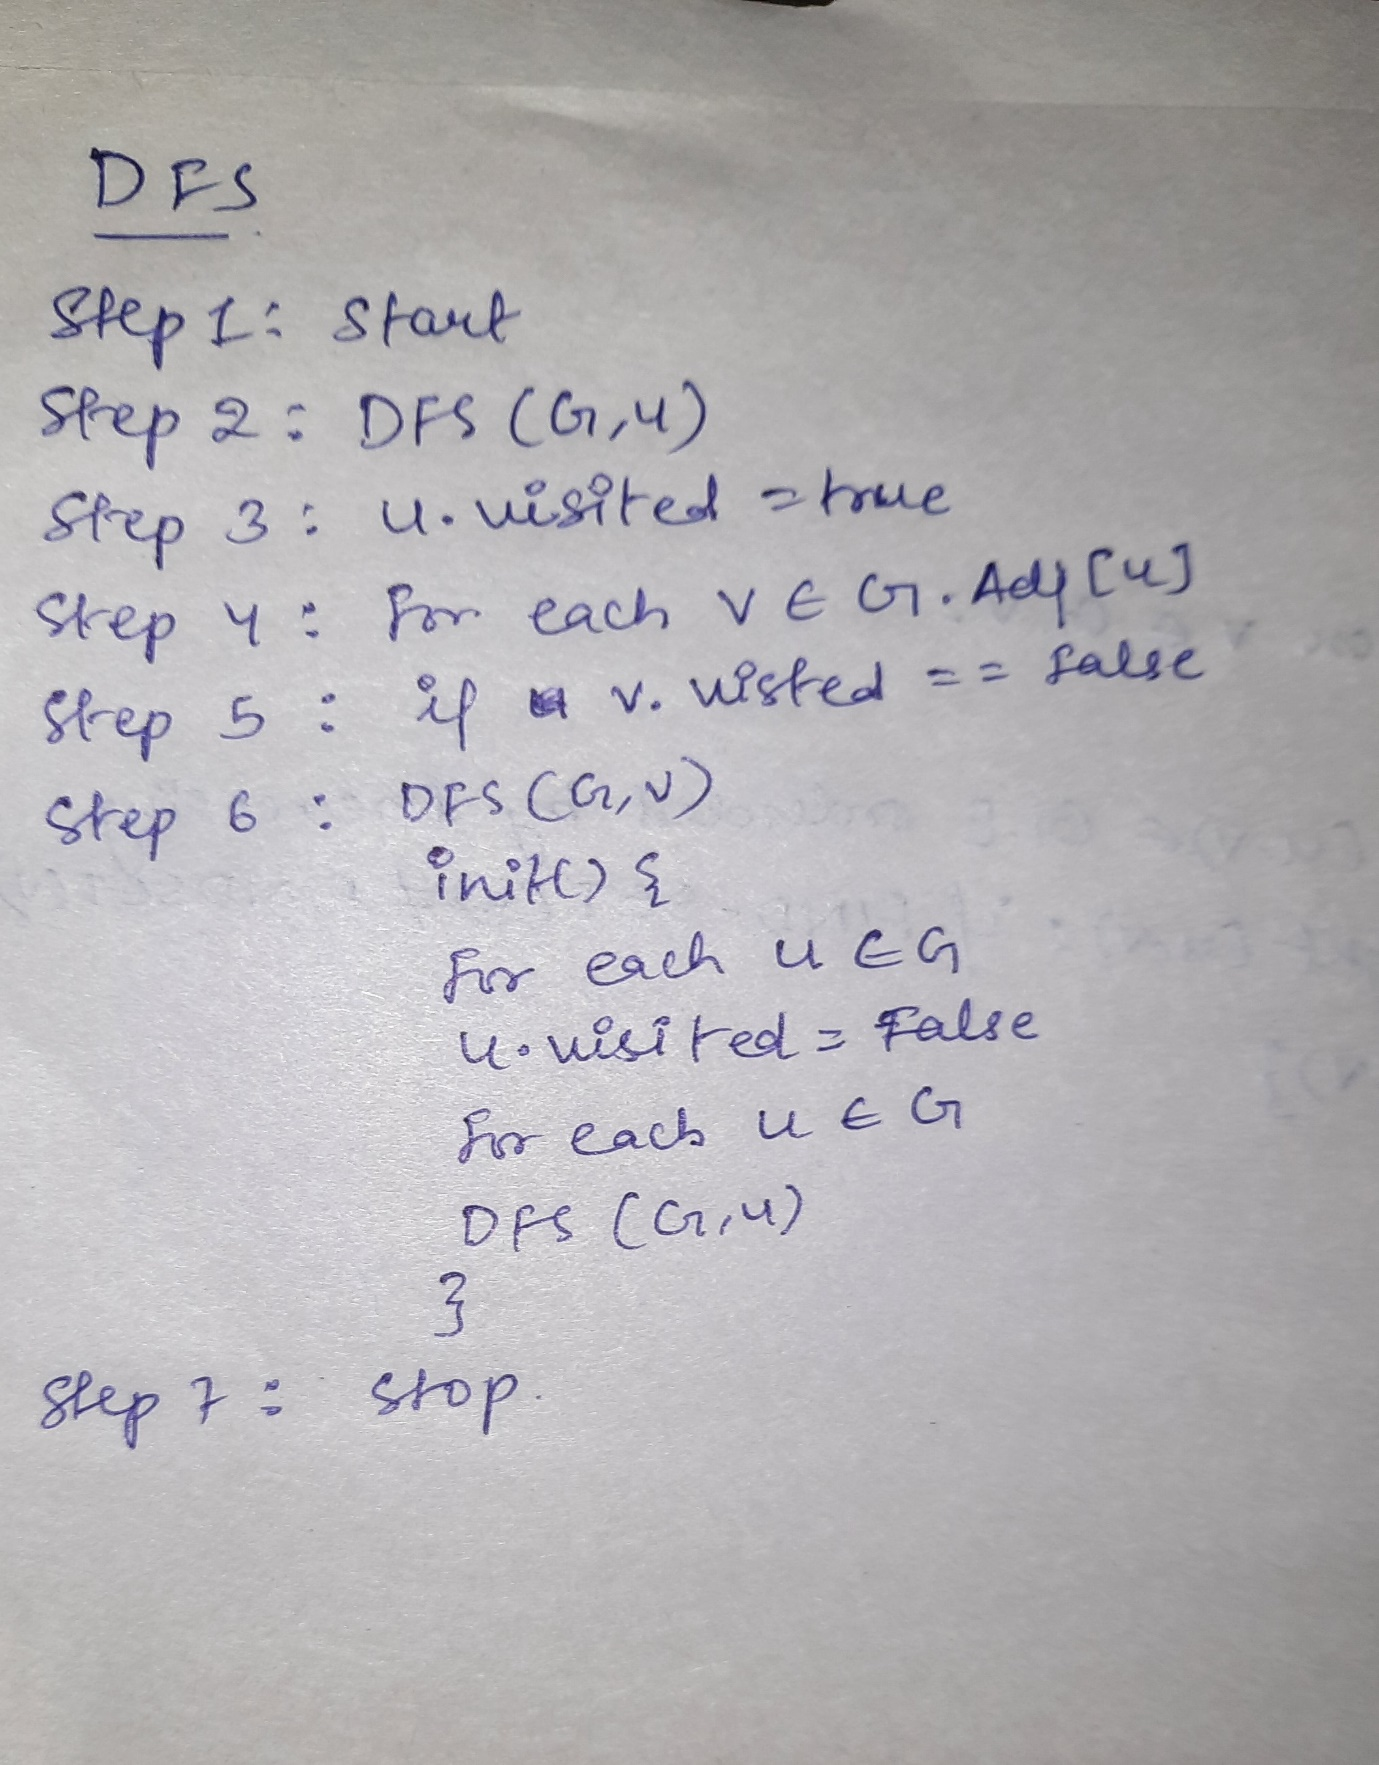 DFS
Step 1: Start
Step 2: DFS (G,u)
Step 3: u.visited = true
Step 4: for each v ∈ G.Adj [u]
Step 5: if v. visted == false
Step 6: DFS (G,v)
init() {
for each u ∈ G
u.visited = False
for each u ∈ G
DFS (G,u)
}
Step 7: Stop.